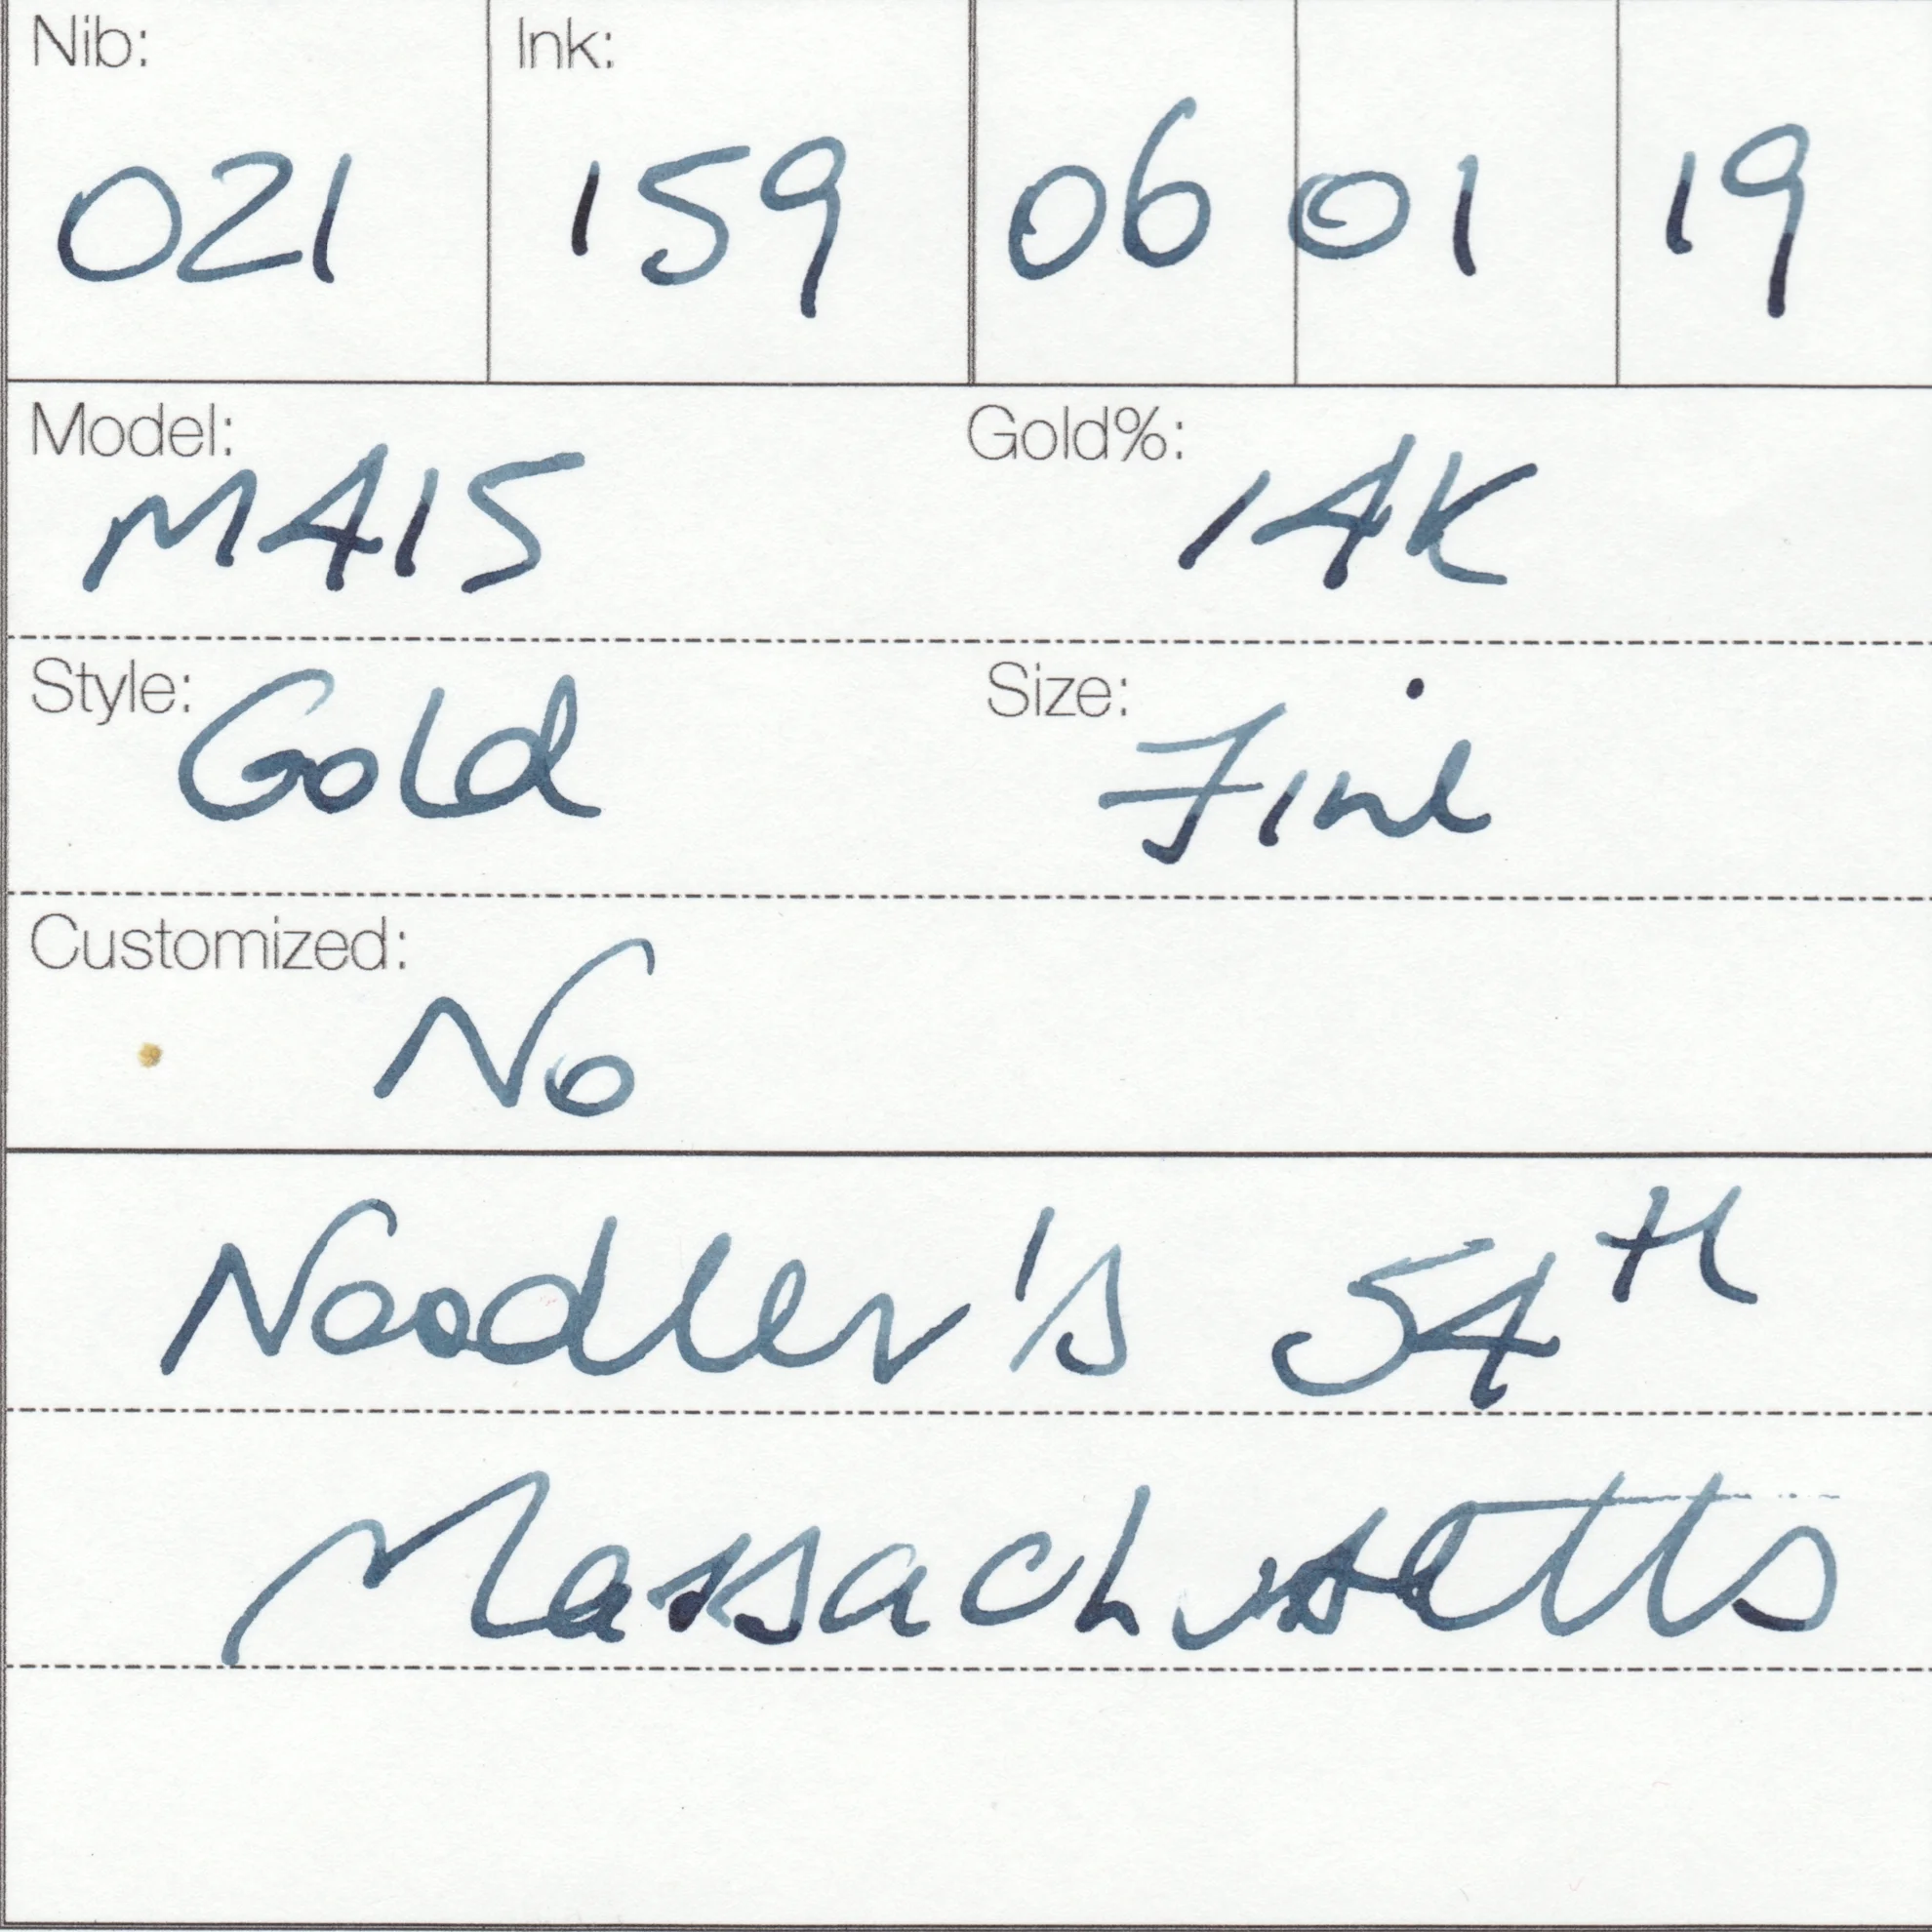 Nib: Ink:
021 159 06 01 19
Model: M415 Gold%: 14K
Style: Gold Size: Fine
Customized: No
Noodler's 54th
Massachusetts